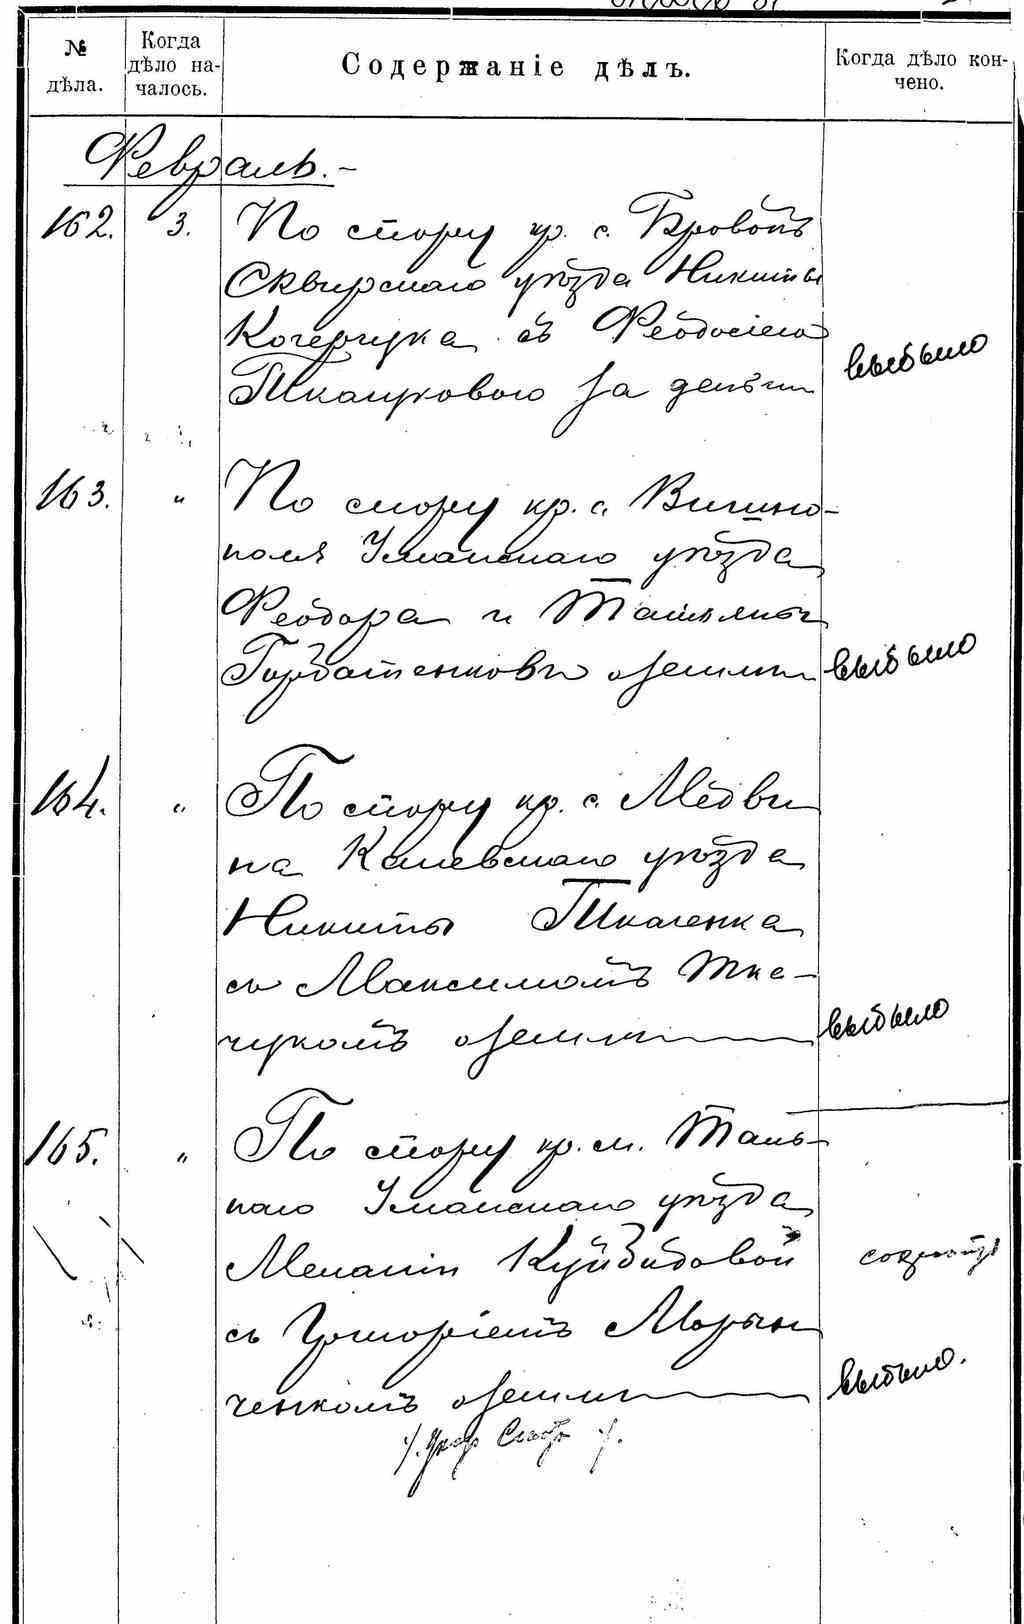 № дѣла.
Когда дѣло началось.
Содержаніе дѣлъ.
Когда дѣло кончено.
Февраль.-
162. 3. По спору кр. с. Бровокъ
Сквирскаго уѣзда Никиты
Кочерчука съ Феодосіею
Ткачуковою за деньги
выбыло
163. " По спору кр. с. Вишно-
поля Уманскаго уѣзда
Феодора и Татьяны
Горбатенковъ о земли
выбыло
164. " По спору кр. с. Медви
на Каневскаго уѣзда
Никиты Ткаченка
съ Максимомъ Тка-
чукомъ о земли
выбыло
165. " По спору кр. м. Таль-
наго Уманскаго уѣзда
Меланіи Куйбидовой
съ Григоріемъ Марын
ченкомъ о земли
выбыло.